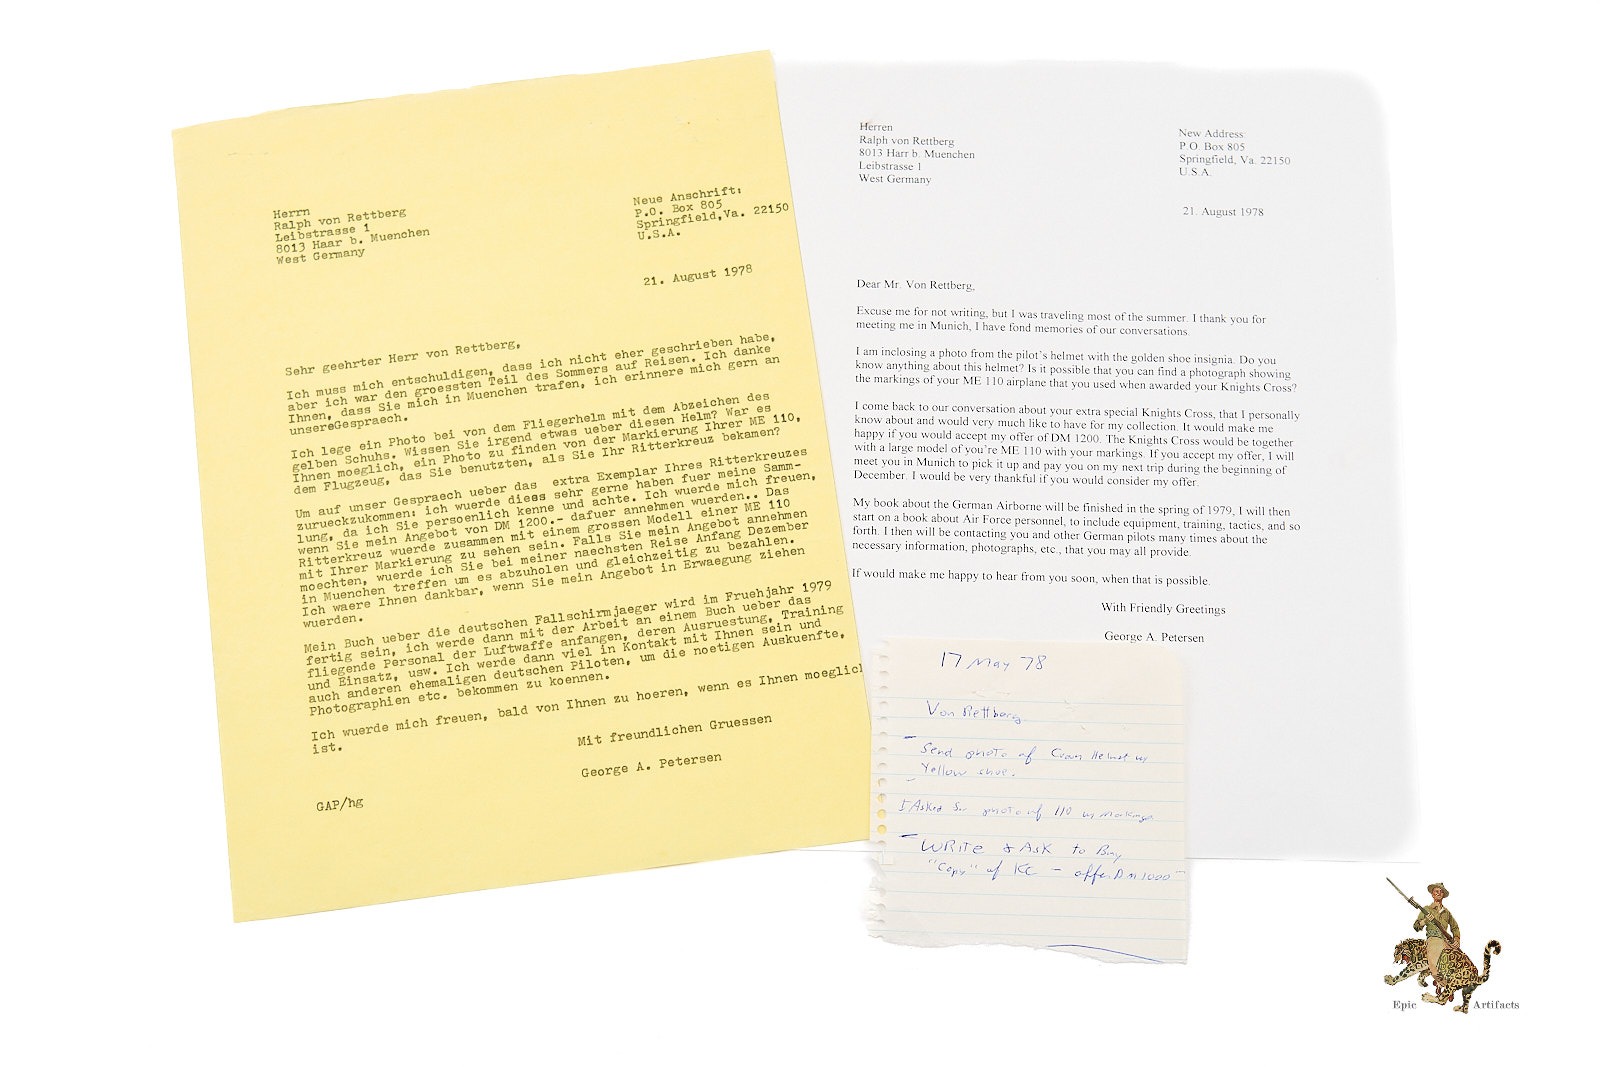 Herrn
Ralph von Rettberg
Leibstrasse 1
8013 Haar b. Muenchen
West Germany
Neue Anschrift:
P.O. Box 805
Springfield,Va. 22150
U.S.A.
21. August 1978
Sehr geehrter Herr von Rettberg,
Ich muss mich entschuldigen, dass ich nicht eher geschrieben habe,
aber ich war den groessten Teil des Sommers auf Reisen. Ich danke
Ihnen, dass Sie mich in Muenchen trafen, ich erinnere mich gern an
unsereGespraech.
Ich lege ein Photo bei von dem Fliegerhelm mit dem Abzeichen des
gelben Schuhs. Wissen Sie irgend etwas ueber diesen Helm? War es
Ihnen moeglich, ein Photo zu finden von der Markierung Ihrer ME 110,
dem Flugzeug, das Sie benutzten, als Sie Ihr Ritterkreuz bekamen?
Um auf unser Gespraech ueber das extra Exemplar Ihres Ritterkreuzes
zurueckzukommen: ich wuerde diess sehr gerne haben fuer meine Samm-
lung, da ich Sie persoenlich kenne und achte. Ich wuerde mich freuen,
wenn Sie mein Angebot von DM 1200.- dafuer annehmen wuerden.. Das
Ritterkreuz wuerde zusammen mit einem grossen Modell einer ME 110
mit Ihrer Markierung zu sehen sein. Falls Sie mein Angebot annehmen
moechten, wuerde ich Sie bei meiner naechsten Reise Anfang Dezember
in Muenchen treffen um es abzuholen und gleichzeitig zu bezahlen.
Ich waere Ihnen dankbar, wenn Sie mein Angebot in Erwaegung ziehen
wuerden.
Mein Buch ueber die deutschen Fallschirmjaeger wird im Fruehjahr 1979
fertig sein, ich werde dann mit der Arbeit an einem Buch ueber das
fliegende Personal der Luftwaffe anfangen, deren Ausruestung, Training
und Einsatz, usw. Ich werde dann viel in Kontakt mit Ihnen sein und
auch anderen ehemaligen deutschen Piloten, um die noetigen Auskuenfte,
Photographien etc. bekommen zu koennen.
Ich wuerde mich freuen, bald von Ihnen zu hoeren, wenn es Ihnen moeglich
ist.
Mit freundlichen Gruessen
George A. Petersen
GAP/hg
Herren
Ralph von Rettberg
8013 Harr b. Muenchen
Leibstrasse 1
West Germany
New Address:
P.O. Box 805
Springfield, Va. 22150
U.S.A.
21. August 1978
Dear Mr. Von Rettberg,
Excuse me for not writing, but I was traveling most of the summer. I thank you for
meeting me in Munich, I have fond memories of our conversations.
I am inclosing a photo from the pilot's helmet with the golden shoe insignia. Do you
know anything about this helmet? Is it possible that you can find a photograph showing
the markings of your ME 110 airplane that you used when awarded your Knights Cross?
I come back to our conversation about your extra special Knights Cross, that I personally
know about and would very much like to have for my collection. It would make me
happy if you would accept my offer of DM 1200. The Knights Cross would be together
with a large model of you're ME 110 with your markings. If you accept my offer, I will
meet you in Munich to pick it up and pay you on my next trip during the beginning of
December. I would be very thankful if you would consider my offer.
My book about the German Airborne will be finished in the spring of 1979, I will then
start on a book about Air Force personnel, to include equipment, training, tactics, and so
forth. I then will be contacting you and other German pilots many times about the
necessary information, photographs, etc., that you may all provide.
If would make me happy to hear from you soon, when that is possible.
With Friendly Greetings
George A. Petersen
17 May 78
Von Rettberg
Send photo of Helmet w/
Yellow shoe.
I Asked for photo of 110 w markings
WRite & Ask to Buy
"Copy" of KC - offer DM 1000
Epic Artifacts